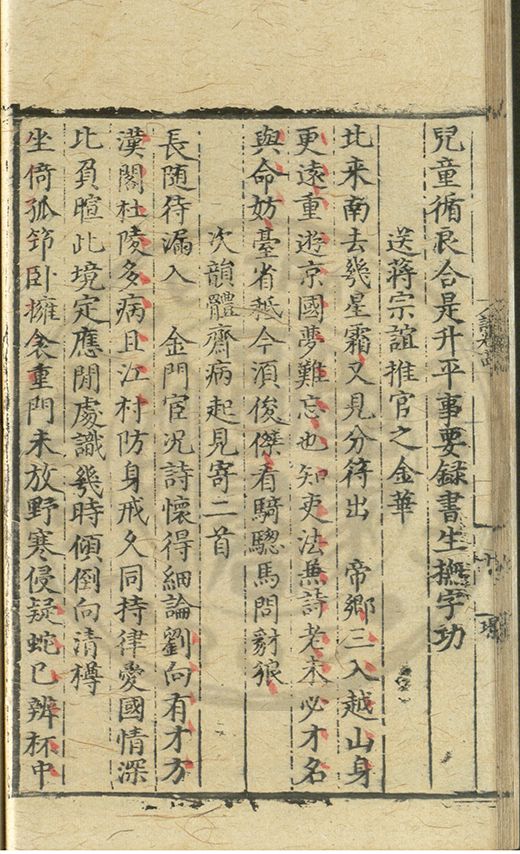 兒童循良合是升平事要録書生撫字功
送蔣宗誼推官之金華
北来南去幾星霜又見分符出　帝鄉三入越山身
更遠重遊京國夢難忘也知吏法兼詩老未必才名
與命妨臺省祗今須俊傑看騎驄馬問豺狼
次韻體齋病起見寄二首
長随待漏入　金門宦况詩懷得細論劉向有才方
漢閣杜陵多病且江村防身戒久同持律愛國情深
比負暄此境定應閒處識幾時傾倒向清樽
坐倚孤筇卧擁衾重門未放野寒侵疑蛇已辨杯中